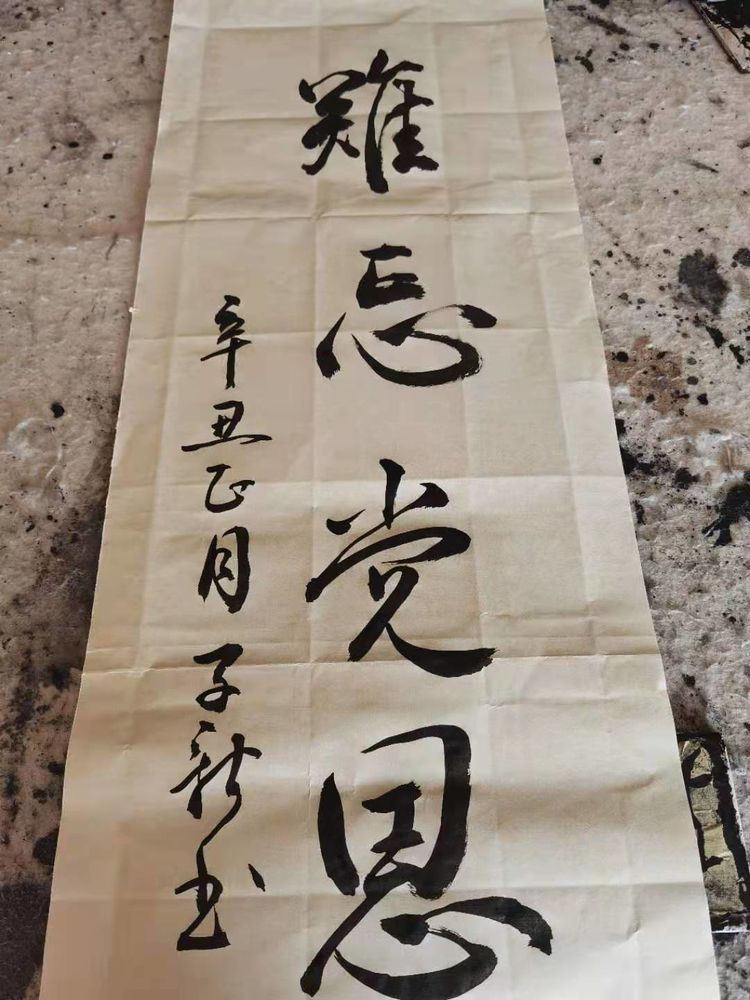 難忘党恩
辛丑正月子新书